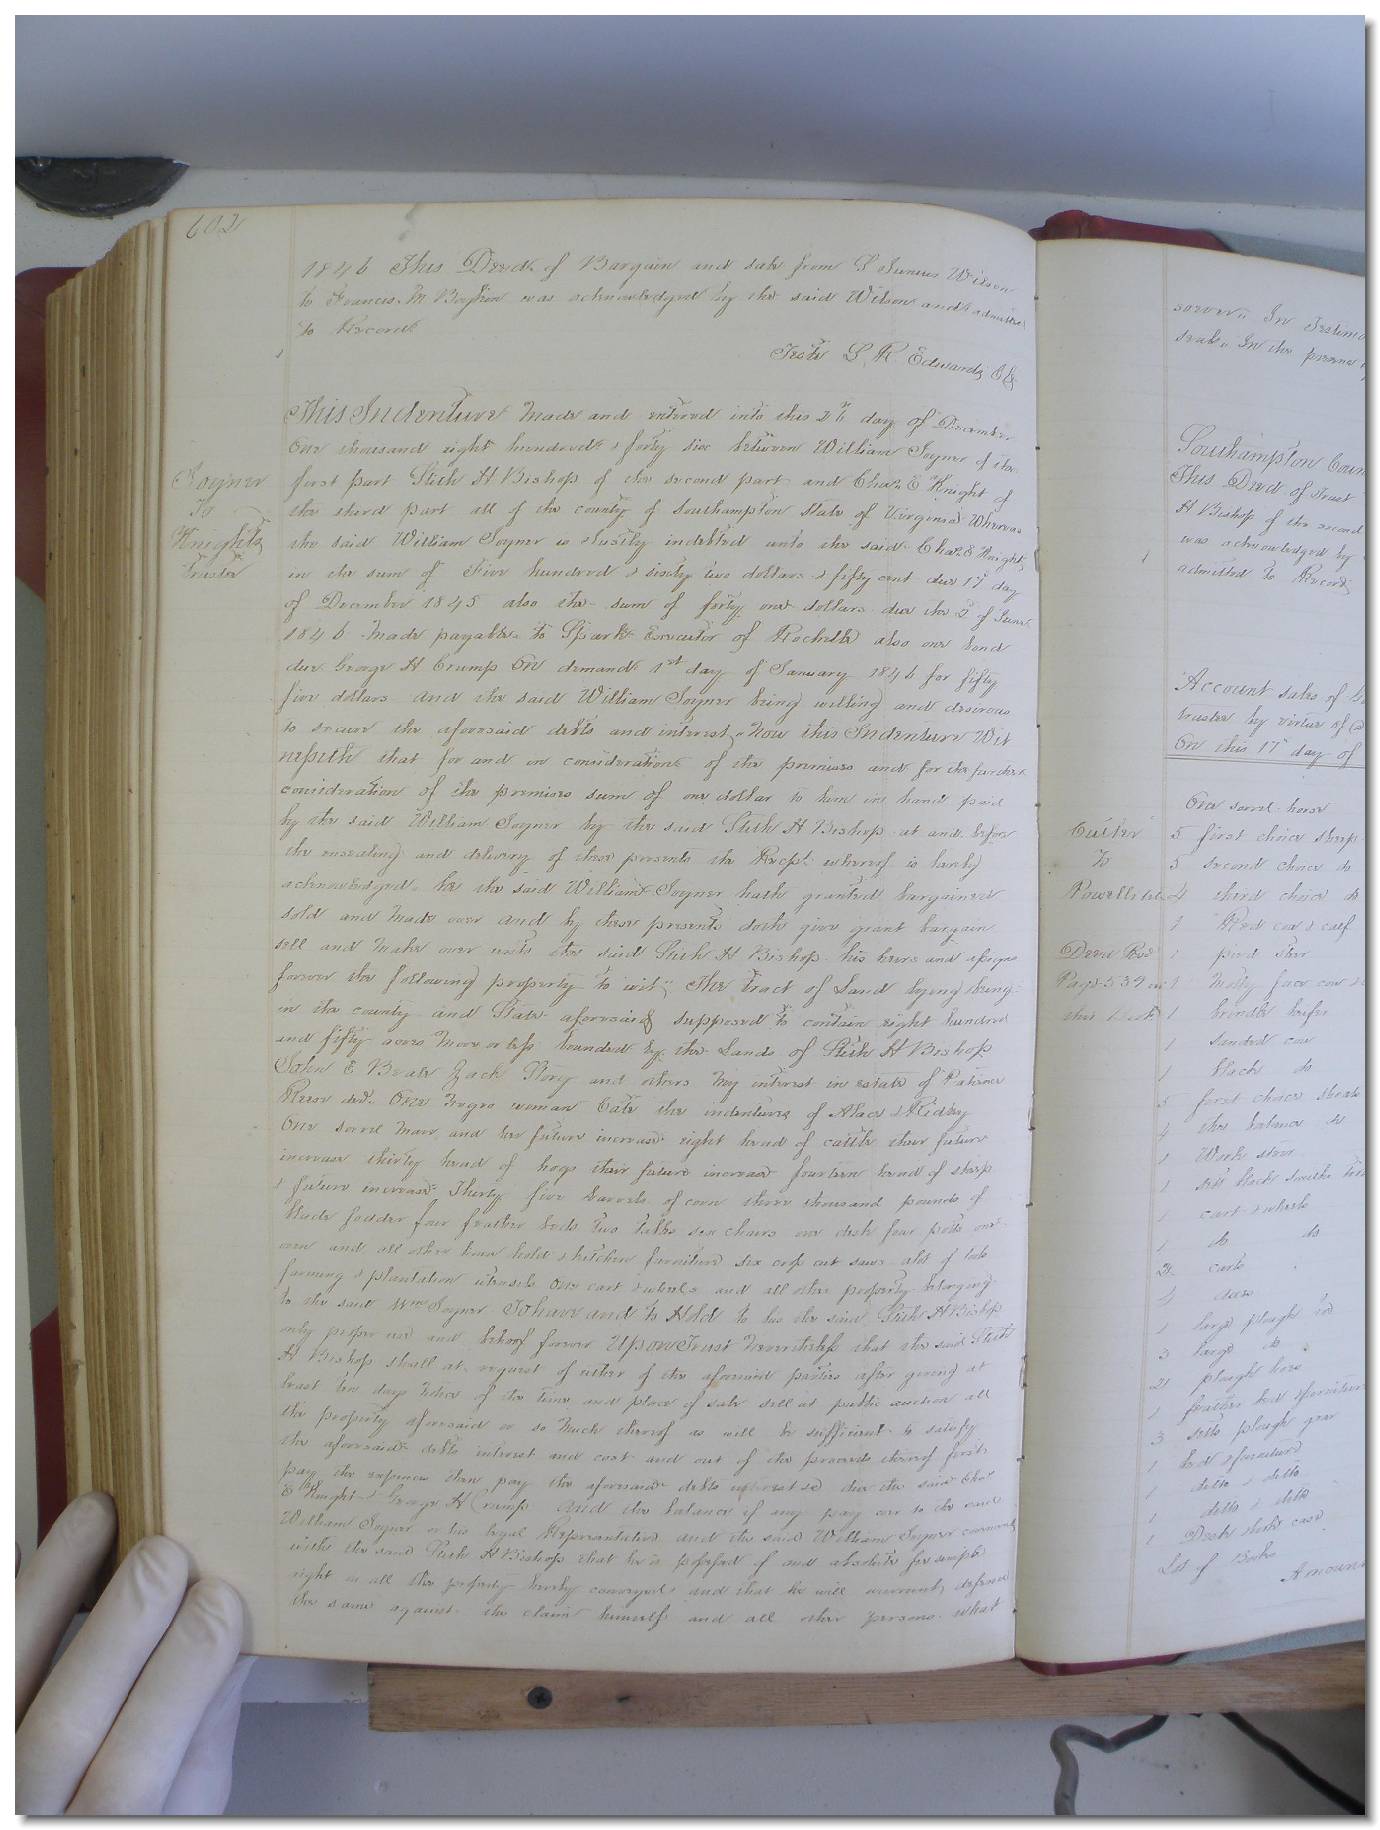 602
1846 This Deed of Bargain and sale from S Junius Wilson
to Francis M Boykin was acknowledged by the said Wilson and admitted
to Record
Teste L R Edwards Clk
Joyner
To
Knights
Trustee
This Indenture Made and entered into this 26th day of December
One thousand eight hundred & forty six between William Joyner of the
first part Stith H Bishop of the second part and Chas E Knight of
the third part all of the county of Southampton State of Virginia Whereas
the said William Joyner is Justly indebted unto the said Chas E Knight
in the sum of Five hundred & sixty two dollars & fifty cent due 17th day
of December 1845 also the sum of forty one dollars due the 5 of June
1846 Made payable to Spark Executor of Rochelle also one bond
due George H Crump On demand 1st day of January 1846 for fifty
five dollars and the said William Joyner being willing and desirous
to secure the aforesaid debts and interest, Now this Indenture Wit
nesseth that for and in consideration of the premises and for the further
consideration of the premises sum of one dollar to him in hand paid
by the said William Joyner by the said Stith H Bishop at and before
the ensealing and delivery of these presents the Recpt whereof is hereby
acknowledged. he the said William Joyner hath granted bargained
sold and made over and by these presents doth give grant bargain
sell and make over unto the said Stith H Bishop his heirs and assigns
forever the following property to wit; The tract of Land lying being
in the county and State aforesaid supposed to contain eight hundred
and fifty acres More or less bounded by the Lands of Stith H Bishop
E Beale Zach and others My interest in estate of Patience
Reese decd. One Negro woman Cate the indentures of & Ridley
One sorrel Mare and her future increase eight head of cattle their future
increase thirty head of hogs their future increase fourteen head of sheep
& future increase Thirty five barrels of corn three thousand pounds of
blade fodder four feather beds two tables six chairs one dish four potts one
oven and all other house hold & kitchen furniture six crop cut saws alot of
farming & plantation utensils One cart & wheels and all other property belonging
to the said Wm Joyner To have and to Hold to his the said Stith H Bishop
only proper use and behoof forever Upon Trust Nevertheless that the said Stith
H Bishop shall at request of either of the aforesaid parties after giving at
least ten days notice of the time and place of sale sell at public auction all
the property aforesaid or so Much thereof as will be sufficient to satisfy
the aforesaid debts interest and cost and out of the proceeds thereof first
pay the expences then pay the aforesaid debts interest due the said Chas
E Knight & George H Crump And the balance if any pay over to the said
William Joyner or his legal Representative and the said William Joyner covenants
with the said Stith H Bishop that he is possessed of and absolute fee simple
right in all the property hereby conveyed and that he will warrant & defend
the same against the claim himself and all other persons what
In
In the presence
Southampton Coun
This Deed of Trust
H Bishop of the second
was acknowledged by
admitted to Record
Account sales of
trustee by virtue of
On this 17th day of
To
Page 539 in
One sorrel horse
5 first choice sheep
5 second choice do
4 third choice do
1 Red cow & calf
1 pied steer
1 Motly face cow
1 brindle heifer
1 sanded cow
1 black do
5 first choice shoats
4 the balance do
1 Work steer
1 sett black smiths
1 cart & wheels
1 do do
2 carts
1
1 large plough
3 large do
21 plough hoes
1 feather bed & furniture
3 setts plough gear
1 bed & furniture
1 ditto & ditto
1 ditto & ditto
1 Desk & case
Lot of Books
Amoun